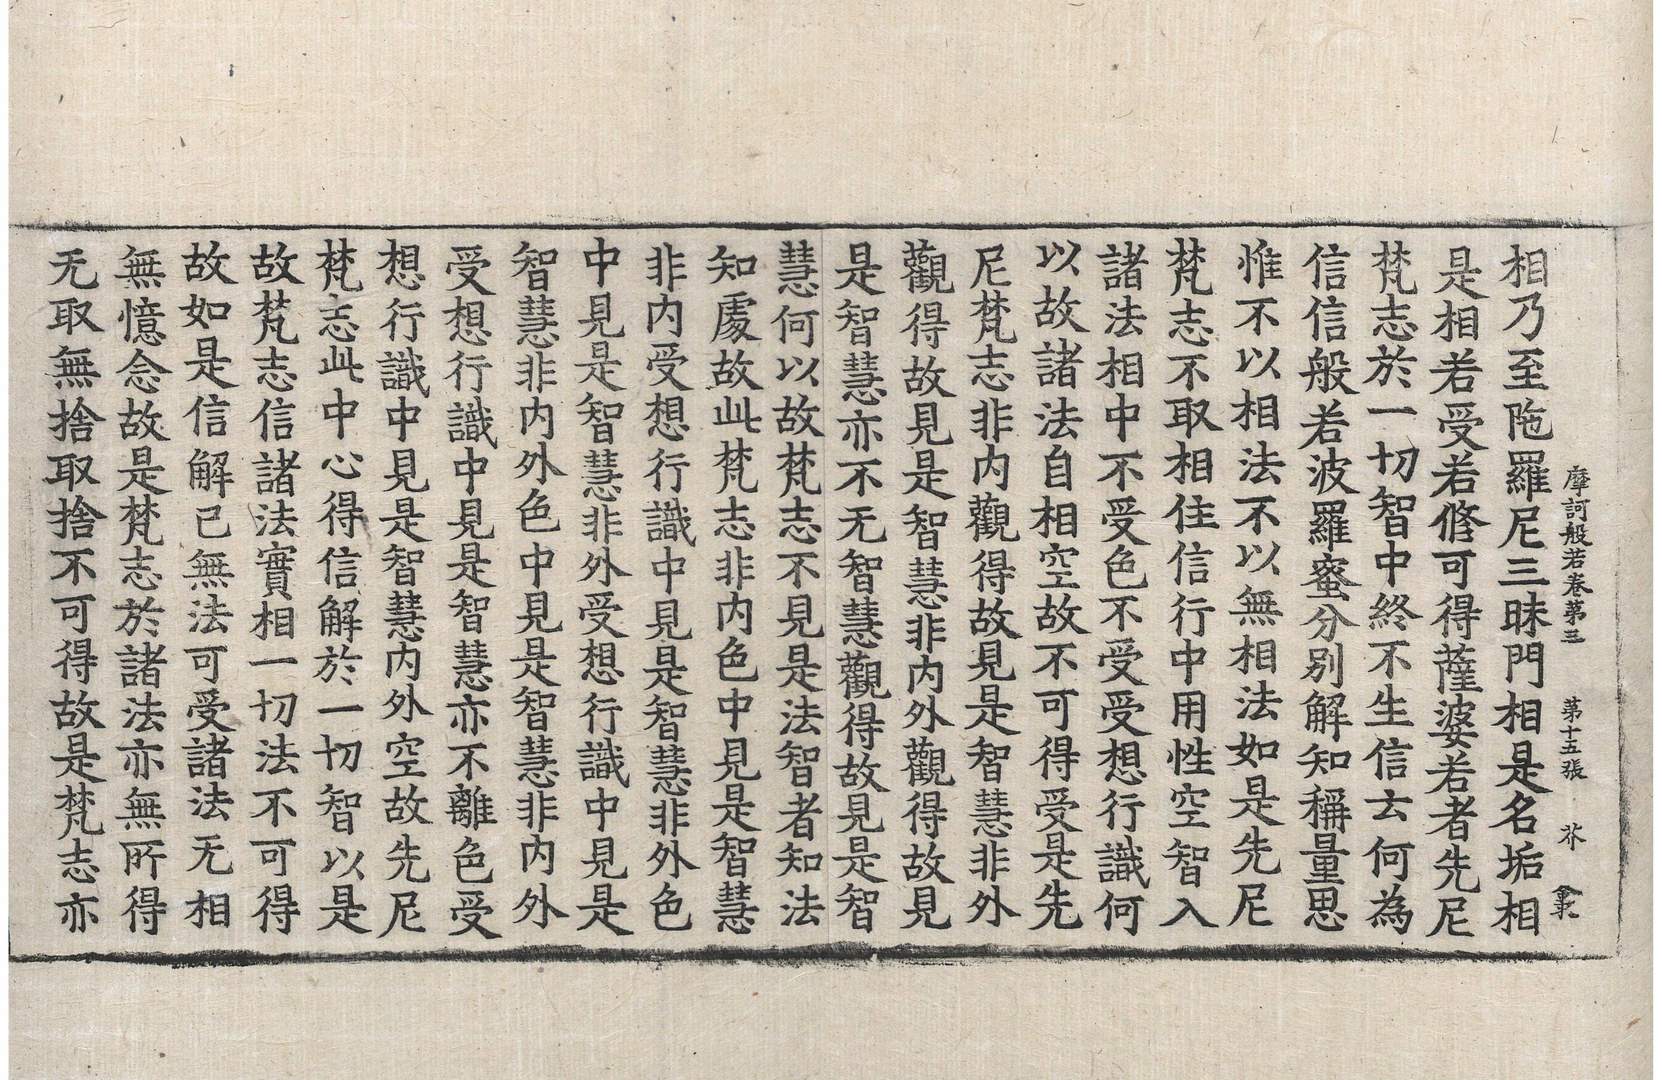 摩訶般若卷第三　第十五張　芥
相乃至陁羅尼三昧門相是名垢相
是相若受若修可得薩婆若者先尼
梵志於一切智中終不生信云何為
信信般若波羅蜜分別解知稱量思
惟不以相法不以無相法如是先尼
梵志不取相住信行中用性空智入
諸法相中不受色不受受想行識何
以故諸法自相空故不可得受是先
尼梵志非内觀得故見是智慧非外
觀得故見是智慧非内外觀得故見
是智慧亦不无智慧觀得故見是智
慧何以故梵志不見是法智者知法
知處故此梵志非内色中見是智慧
非内受想行識中見是智慧非外色
中見是智慧非外受想行識中見是
智慧非内外色中見是智慧非内外
受想行識中見是智慧亦不離色受
想行識中見是智慧内外空故先尼
梵志此中心得信解於一切智以是
故梵志信諸法實相一切法不可得
故如是信解已無法可受諸法无相
無憶念故是梵志於諸法亦無所得
无取無捨取捨不可得故是梵志亦